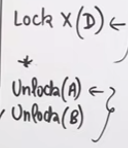 Lock X(D) ←
*
Unlock(A) ←
Unlock(B)